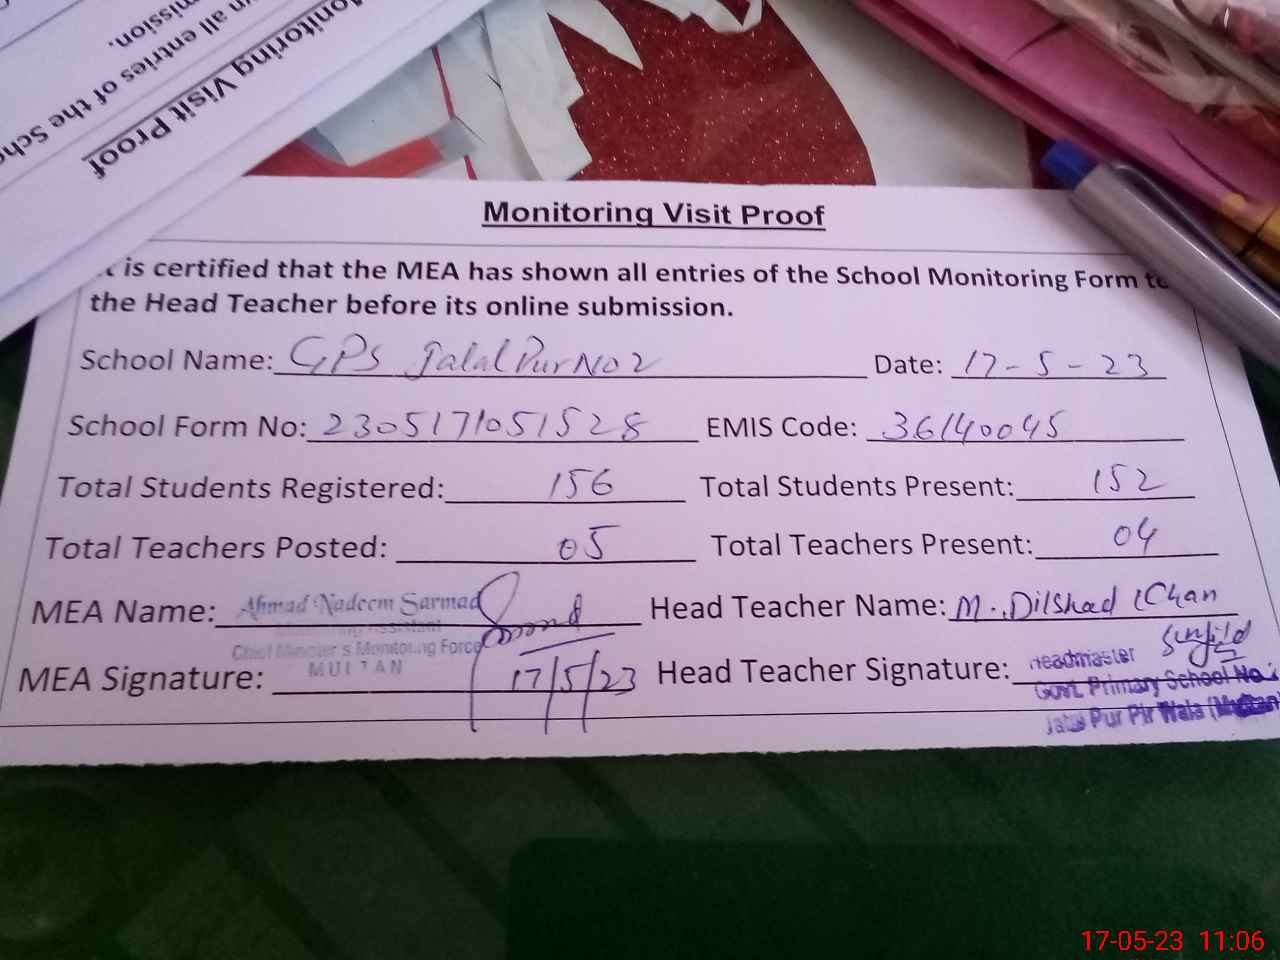 Monitoring Visit Proof
n all entries of the Scho
mission.
Monitoring Visit Proof
is certified that the MEA has shown all entries of the School Monitoring Form to
the Head Teacher before its online submission.
School Name: GPS Jalal Pur No 2 Date: 17-5-23
School Form No: 2305171051528 EMIS Code: 36140045
Total Students Registered: 156 Total Students Present: 152
Total Teachers Posted: 05 Total Teachers Present: 04
MEA Name: Ahmad Nadeem Sarmad Head Teacher Name: M. Dilshad Khan
Monitoring Assistant
Chief Minister's Monitoring Force
MULTAN
MEA Signature: 17/5/23 Head Teacher Signature:
Headmaster
Govt. Primary School No.
Jalal Pur Pir Wala (Multan
17-05-23 11:06